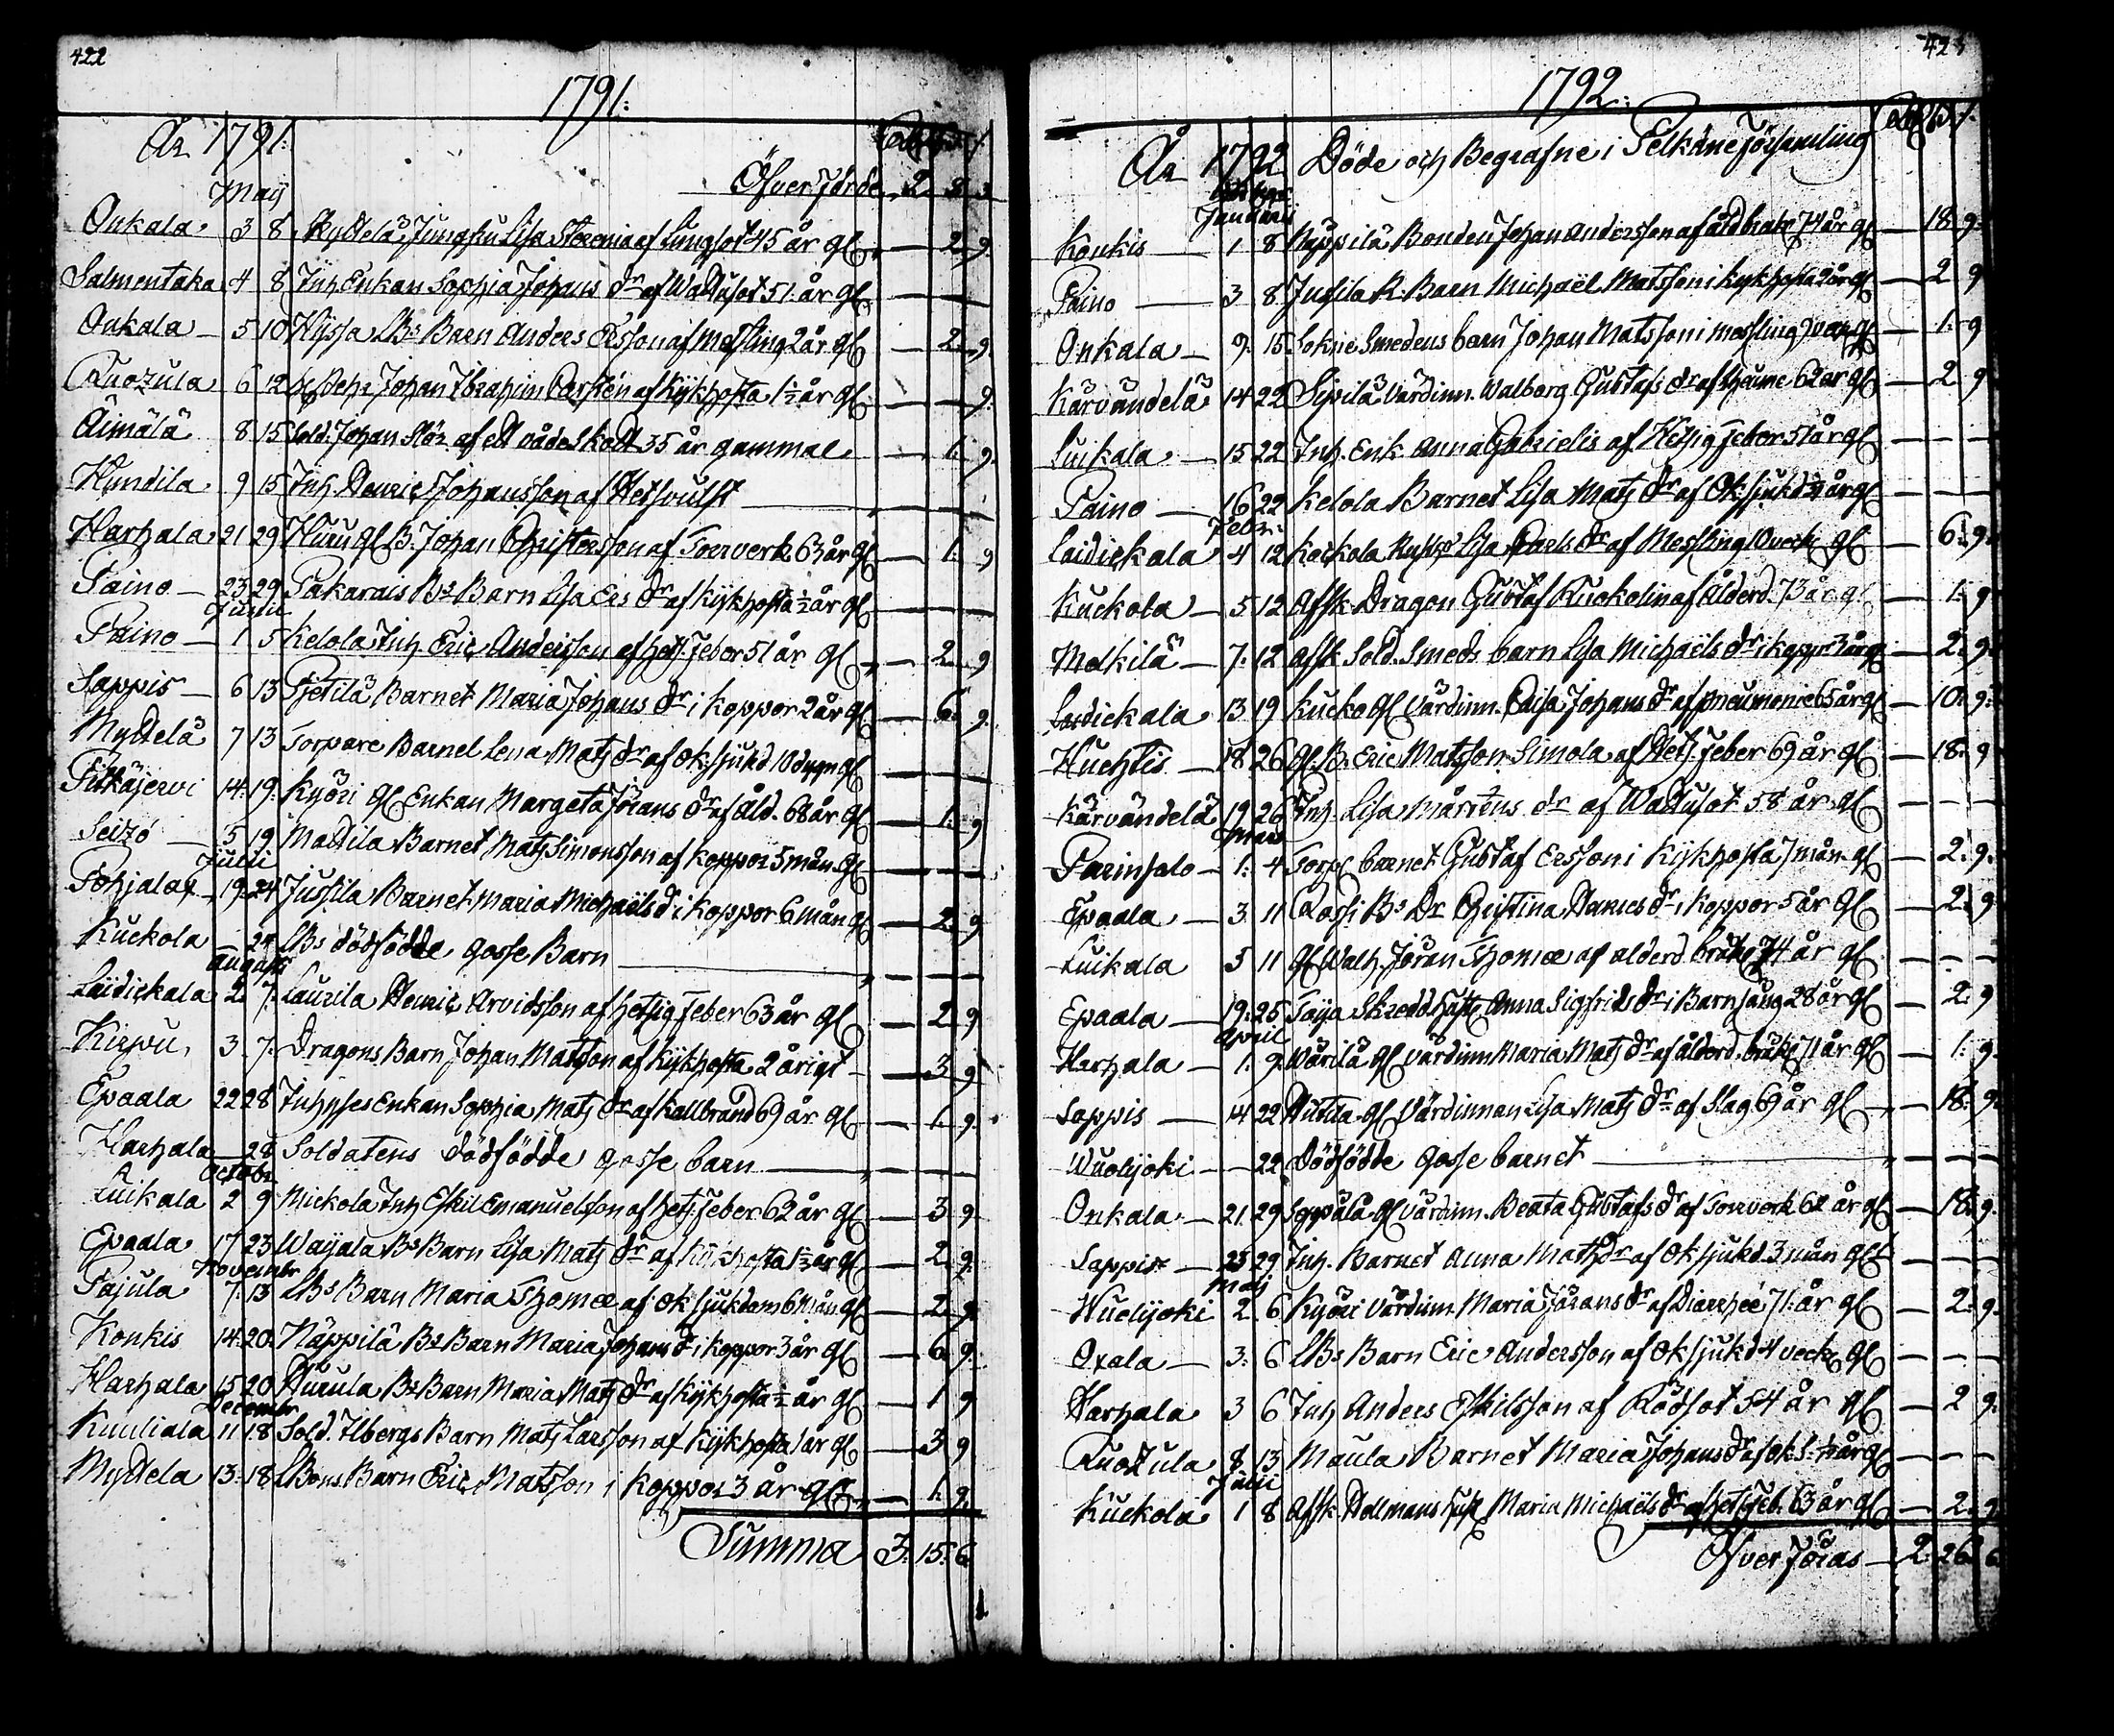 422
1791.
År 1791.
Öfverförde 2. 8. 3
Maij
Onkala 3 8 Jungfru Lisa af Lungsot 45 år gl. — 2. 9.
Salmentaka 4 8 Inh. Enkan Sophia Johans dr af Wattusot 51 år gl. — —
Onkala 5 10 Hyssa Bs Barn Anders Ersson af Messling 2 år gl. — 2. 9.
Ruozula 6 12 Johan Ibrahim af Kykhosta 1½ år gl. — 9.
Äimälä 8 15 Sold. Johan Stör af ett vådeskott 35 år gammal — 1. 9.
Hundila 9 15 Inh. Henric Johansson af Hetsvulst — —
Harhala 21 29 Huru gl. B. Johan Christersson af Torrverk 63 år gl. — 1. 9
Paino 23 29 Pakarais Bs Barn Lisa Ers dr af Kykhosta ½ år gl. — —
Junii
Paino 1 5 Kelola Inh. Eric Andersson af hets. feber 51 år gl. — 2. 9
Sappis 6 13 Pjetilä Barnet Maria Johans dr i Koppor 2 år gl. — 6. 9.
Myttelä 7 13 Torpare Barnet Lena Mats dr af ok. sjukd. 10 dygn gl. — —
Pitkäjervi 14. 19. Kyöri gl. Enkan Margeta Jörans dr af åld. 68 år gl. — 1. 9
Seitzo 15 19 Mattila Barnet Mats Simonsson af koppor 5 mån. gl. — —
Julii
Pohjalax 19. 24 Jussila Barnet Maria Michaels dr i koppor 6 mån gl. — 2. 9
Kuckola — 24 Bs dödfödde gosse Barn — —
Augusti
Laidickala 2. 7. Laurila Henric Arvidsson af hetsig feber 63 år gl. — 2. 9
Kirpu 3. 7. Dragons Barn Johan Matsson af Kykhosta 2 årigt — 3 9
Epaala 22 28 Inhyses Enkan Sophia Mats dr af Kallbrand 69 år gl. — 1. 9.
Harhala — 28 Soldatens dödfödde gosse barn — —
Octobr.
Luikala 2 9 Mickola Inh. Eskil Emanuelsson af hets. feber 62 år gl. — 3. 9.
Epaala 17 23 Wayala Bs Barn Lisa Mats dr af Kykhosta 1½ år gl. — 2. 9.
Novembr
Pajula 7. 13 Bs Barn Maria Thomæ af ok. sjukdom 6 mån gl. — 2. 9
Konkis 14. 20. Näppilä Bs Barn Maria Johans dr i koppor 3 år gl. — 6. 9.
Harhala 15 20 Bs Barn Maria Mats dr af Kykhosta ½ år gl. — 1 9
Decembr
Kuuliala 11 18 Sold. Ilbergs Barn Mats Larsson af Kykhosta 1 år gl. — 3 9
Myttela 13. 18 Bons Barn Eric Matsson i koppor 3 år gl. — 1. 9.
Summa 3. 15. 6
423
1792.
År 1792 Döde och Begrafne i Pelkäne Församling
Januarii
Konkis 1 8 Näppilä Bonden Johan Andersson af ålderd. bråk 74 år gl. — 18. 9.
Paino 3 8 Jussila R. Barn Michaël Matsson i kykhosta 2 år gl. — 2 9
Onkala 9. 15 Sokne Smedens barn Johan Matsson i messling gl. — 1. 9
Kärvändelä 14 22 Sipilä Värdinn. Walborg Gustafs dr 62 år gl. — 2 9
Luikala 15 22 Inh. Enk. Anna Gabrielis af Hetsig feber 51 år gl. — —
Paino 16 22 Kelola Barnet Lisa Mats dr af ok. sjukd. år gl. — —
Febr.
Laidickala 4 12 Kockola Lisa Carls dr af Messling veck. gl. — 6. 9.
Kuckola 5 12 Afsk. Dragon Gustaf Kuokolin af Ålderd. 73 år gl. — 1. 9
Melkilä 7. 12 Afsk. Sold. Smeds barn Lisa Michaels dr i koppr. 3 år gl. — 2. 9.
Laidickala 13 19 Kucko gl. Värdinn. Caisa Johans dr af pneumonie 65 år gl. — 10. 9.
Huchtis 18 26 gl. B. Eric Matsson Simola af Hets. feber 69 år gl. — 18. 9
Kärvändelä 19 26 Inh. Lisa Mårtens dr af Wattusot 58 år gl. — —
Mars
Parinsalo 1. 4 Torp. barnet Gustaf Ersson i Kykhosta 7 mån. gl. — 2. 9.
Epaala 3. 11 Rossi Bs Dr Christina Henrics dr i koppor 5 år gl. — 2. 9
Luikala 5 11 gl. Jöran Thomæ af alderd. bråk 74 år gl. — —
Epaala 19. 25 Taija Skredd. hust. Anna Sigfrids dr i Barnsäng 28 år gl. — 2. 9
April
Harhala 1. 9. Wärilä gl. värdinn. Maria Mats dr af ålderd. bråk 71 år gl. — 1. 9.
Sappis 14 22 gl. Värdinnan Lisa Mats dr af Slag 69 år gl. — 18. 9.
Wuolijoki — 22 Dödfödde gosse barnet — —
Onkala 21. 29 Seppälä gl. värdinn. Beata Gustafs dr af Torrverk 62 år gl. — 18. 9.
Sappis 23 29 Inh. Barnet Anna Mats dr af ok. sjukd. 3 mån gl. — —
Maij
Wuolijoki 2. 6 Kyöri Värdinn. Maria Jörans dr af Diarrhée 71 år gl. — 2. 9.
Oxala 3. 6 Bs Barn Eric Andersson af ok. sjukd. 4 veck. gl. — —
Harhala 3 6 Inh. Anders Eskilsson af Rödsot 54 år gl. — 2 9.
Ruozula 8 13 Maula Barnet Maria Johans dr af ok. s. ½ år gl. — —
Junii
Kuckola 1 8 Afsk. Hallmans hust. Maria Michaels dr af hets. feb. 63 år gl. — 2. 9.
Öfverföras — 2. 26. 6